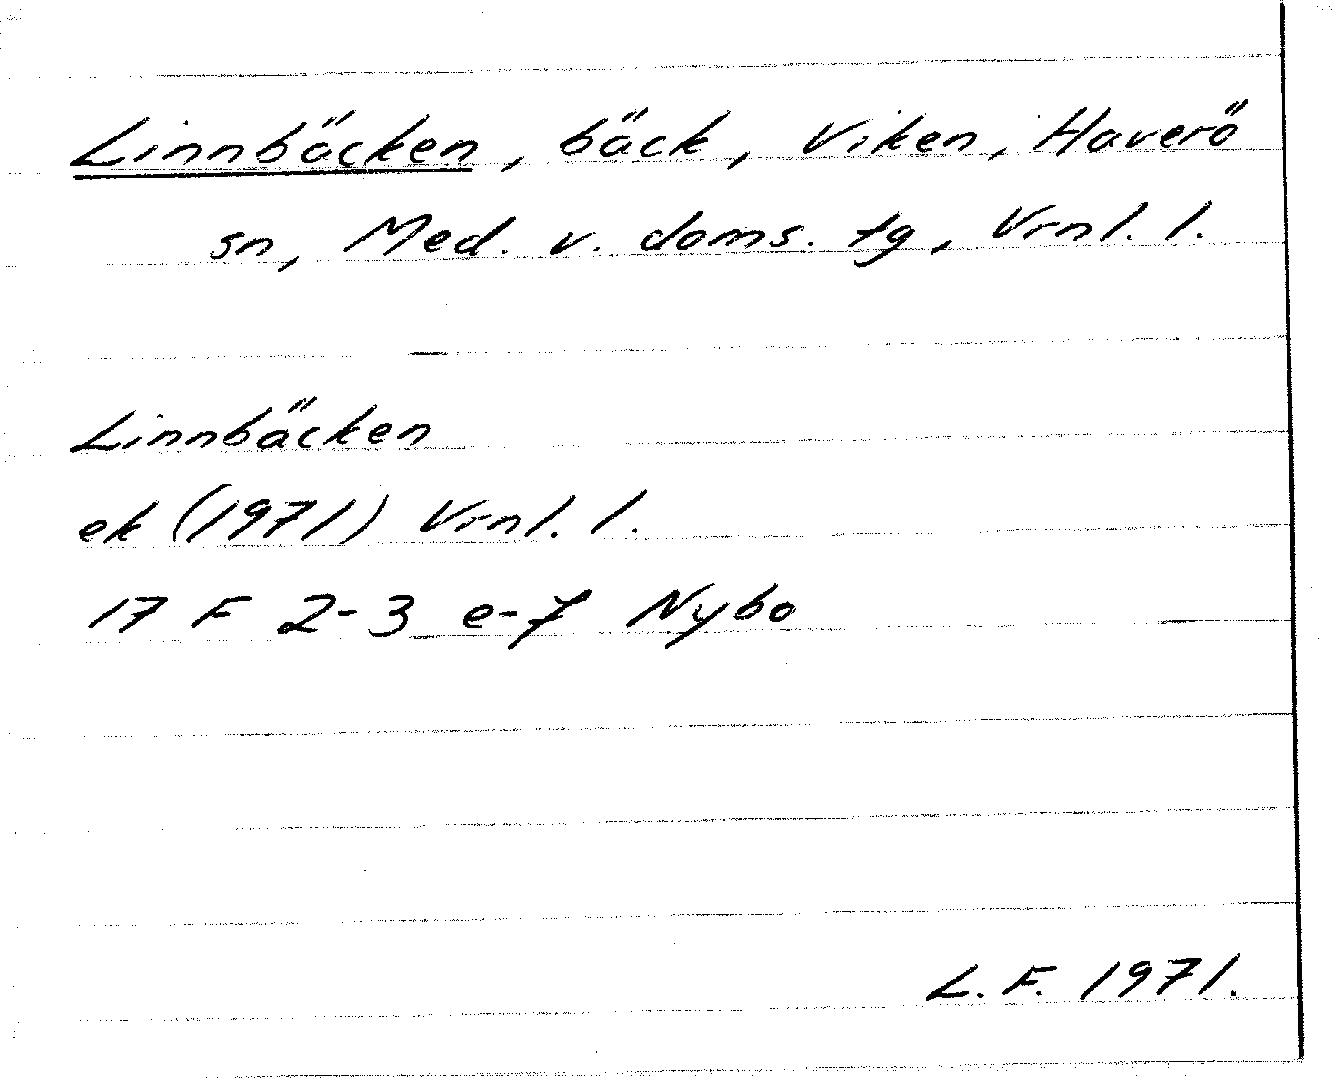 Linnbäcken, bäck, Viken, Haverö
sn, Med. v. doms. tg, Vrnl. l.
Linnbäcken
ek (1971) Vrnl. l.
17 F 2-3 e-f Nybo
L. F. 1971.